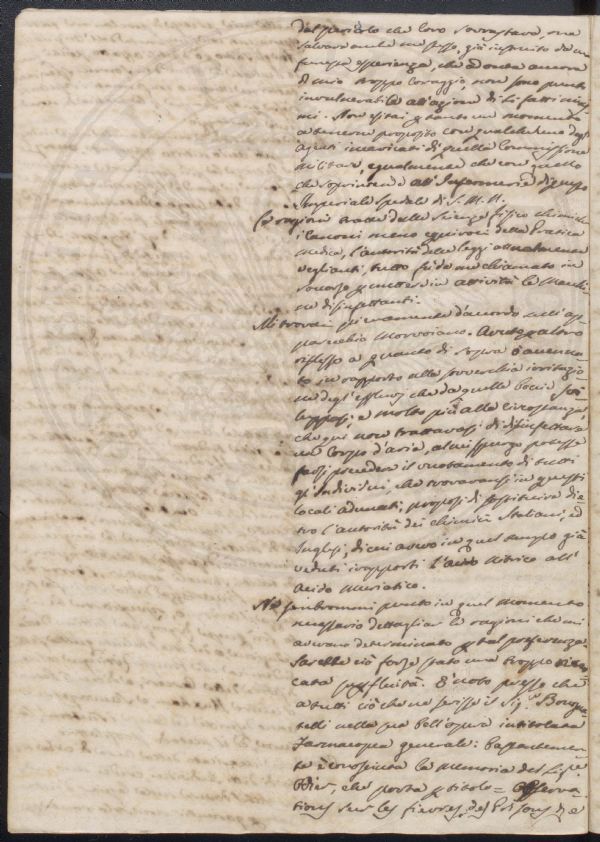 dal pericolo che loro sovrastava, ma
salvare anche me stesso, già istruito da una
funesta esperienza, che ad onta ancora
di mio troppo coraggio, non sono punto
invulnerabile all'azione di sì fatti mias
mi. Non esitai p tanto un momento
a tenerne proposito con qualcheduno degl
Agenti incaricati di quella Commissione
militare, egualmente che con quello
che soprintende all'Infermerie di questo
Imperiale Spedale di S. M. N.
Le ragioni tratte dalle Scienze fisico chimiche
i Canoni meno equivoci della Pratica
Medica, l'autorità delle leggi attualmente
veglianti, tutto fu da me chiamato in
soccorso p mettere in attività le Macchi
ne disinfettanti.
Mi trovai pienamente d'accordo sull'ap
parecchio Morvoiano. Avuto però
riflesso a quanto di sopra è accenna
to in rapporto alla soverchia irritazio
ne degl'effluvj che da quelle bocie
e molto più alla circostanza,
che qui non trattavasi di disinfettare
un Corpo d'aria, al cui spurgo potesse
farsi precedere il vuotamento di tutti
gl'Individui, che trovavansi in questi
locali adunati; proposi di sostituire die
tro l'autorità dei chimici Italiani, ed
Inglesi, di cui avevo in quel tempo già
veduti i rapporti l'acido Nitrico all'
Acido Muriatico.
Nè sembrommi punto in quel momento
necessario dettagliar le ragioni che mi
avevano determinato p tal preferenza.
Sarebbe ciò forse stato una troppo
cata superfluità. È noto presso che
a tutti ciò che ne scrisse il Sig.r Brugna
telli nella sua bell'opera intitolata
Farmacopea generale: bastantemen
te è conosciuta la Memoria del Sig.r
che porta p titolo = Observa-
tions sur les fievres des Prisons &c